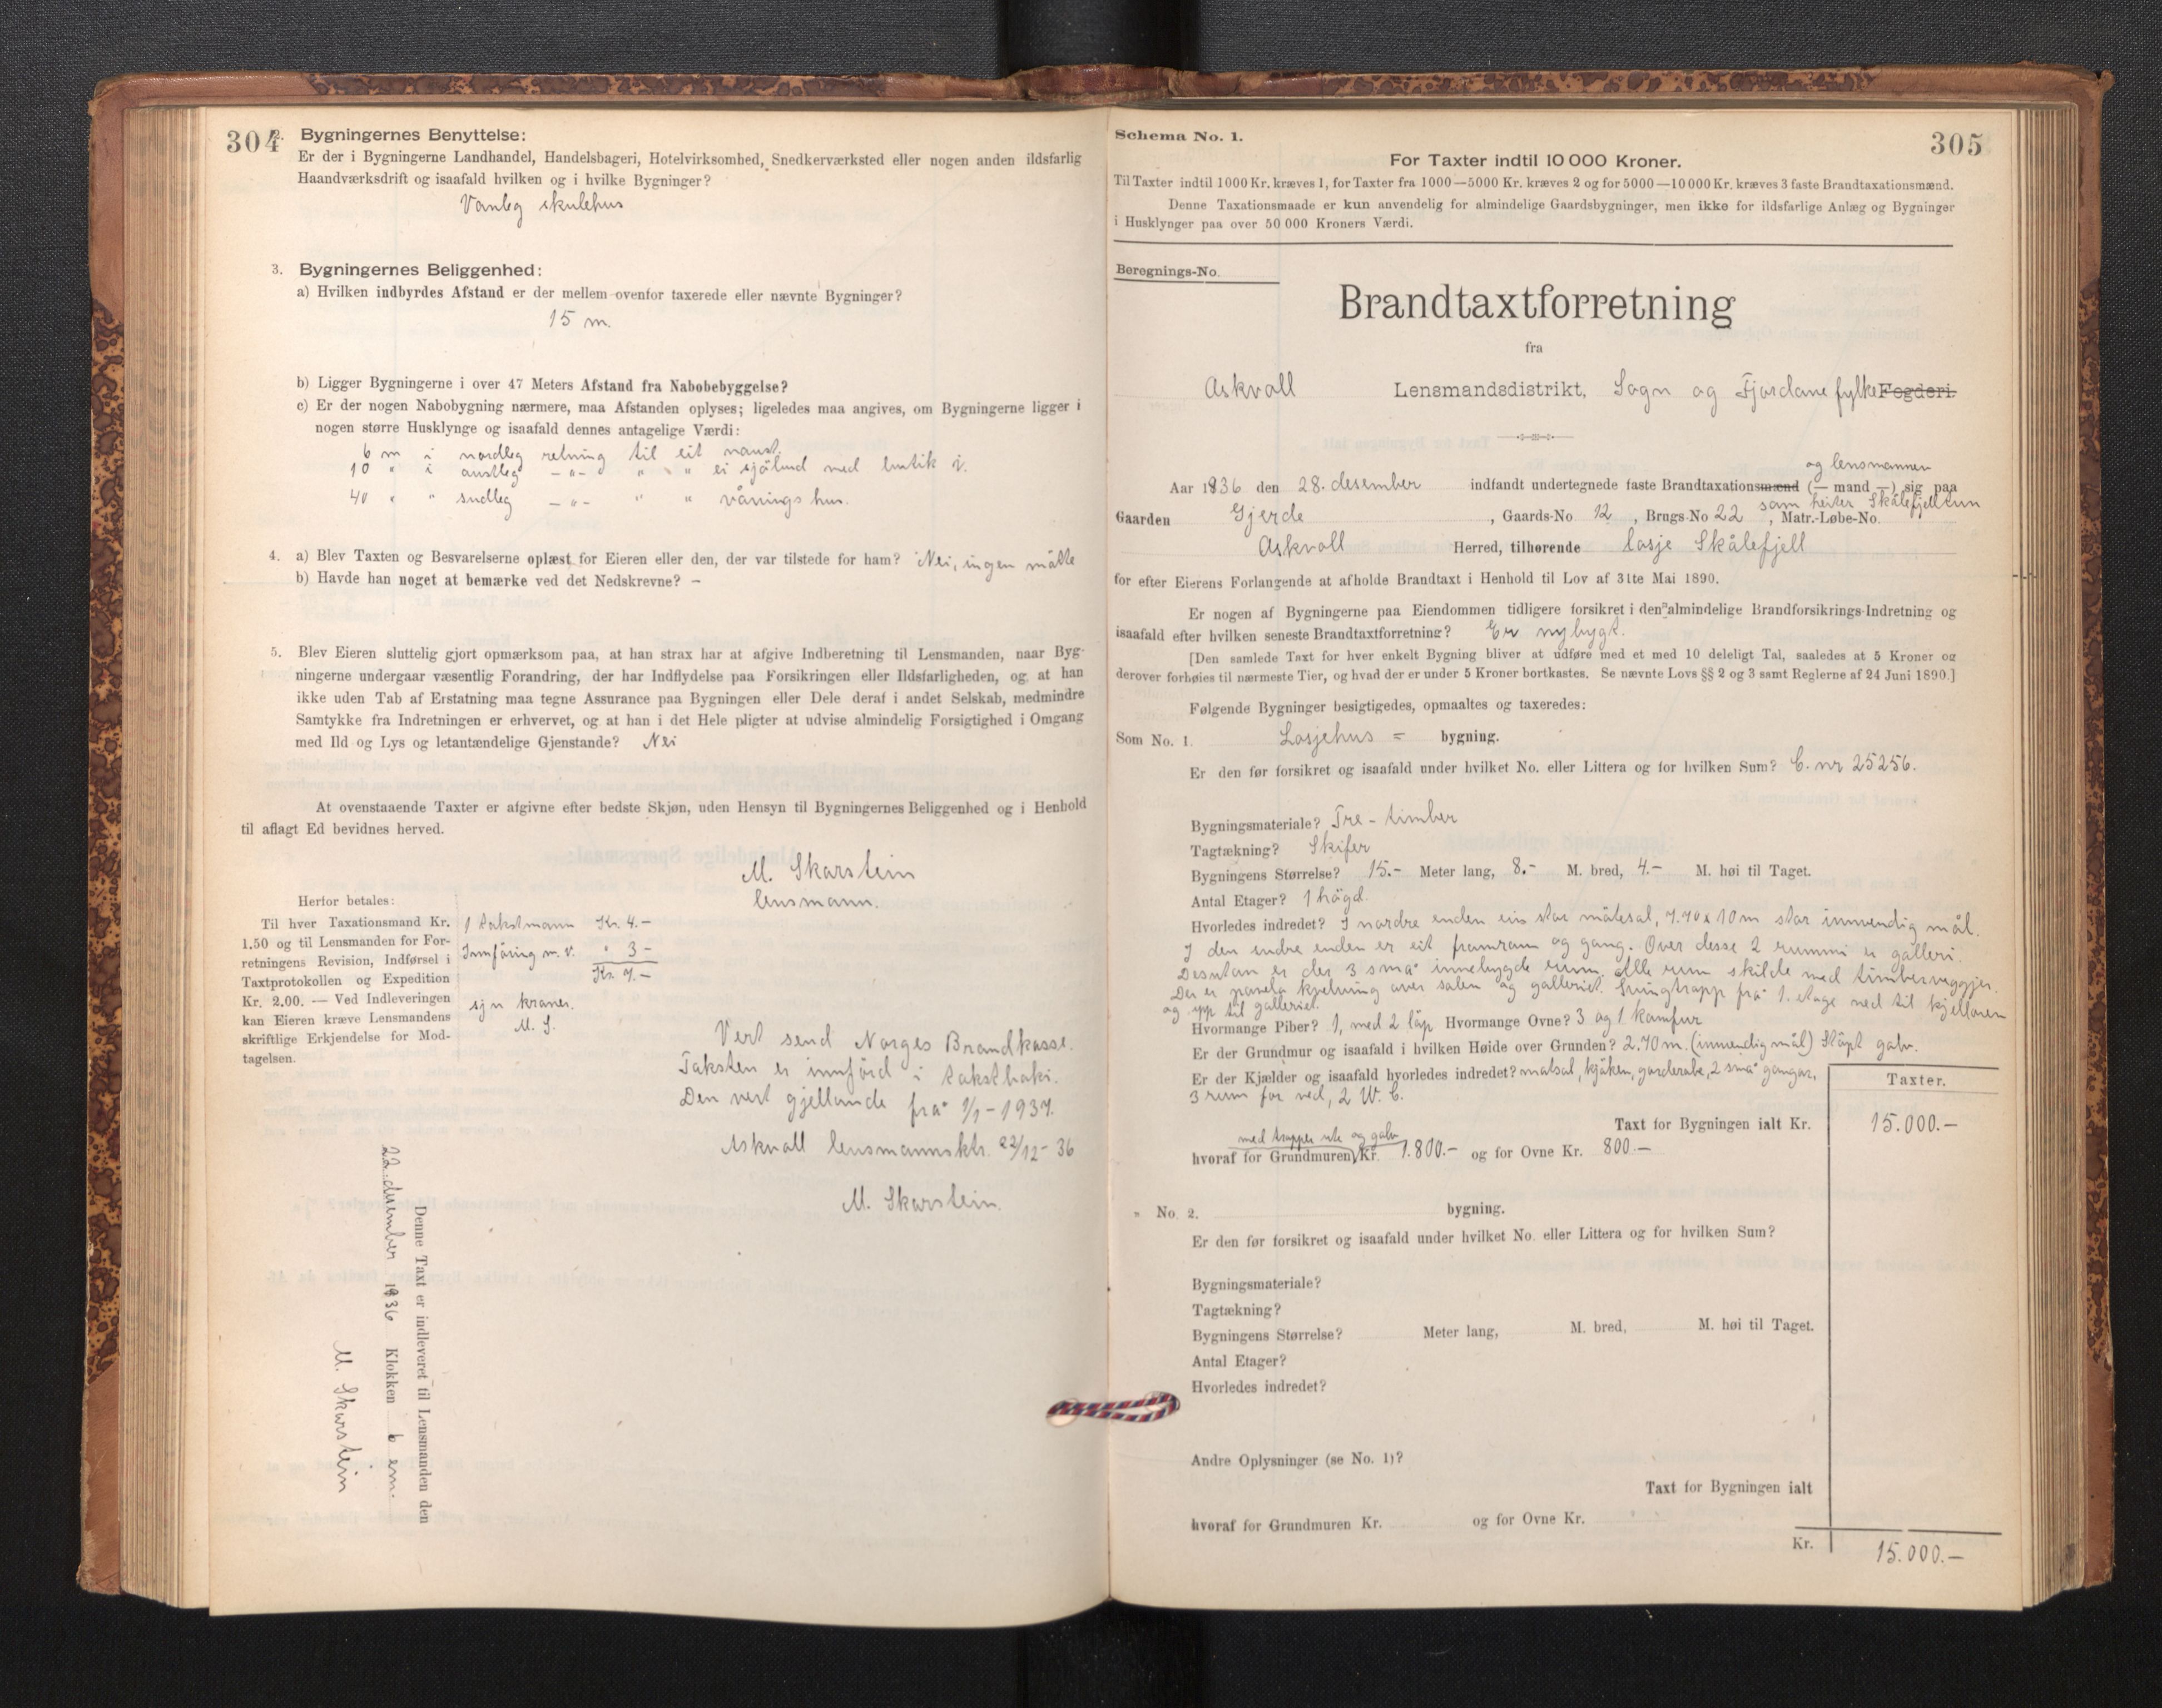 304
2. Bygningernes Benyttelse:
Er der i Bygningerne Landhandel, Handelsbageri, Hotelvirksomhed, Snedkerværksted eller nogen anden ildsfarlig
Haandværksdrift og isaafald hvilken og i hvilke Bygninger?
Vanleg skulehus
3. Bygningernes Beliggenhed:
a) Hvilken indbyrdes Afstand er der mellem ovenfor taxerede eller nævnte Bygninger?
15 m.
b) Ligger Bygningerne i over 47 Meters Afstand fra Nabobebyggelse?
c) Er der nogen Nabobygning nærmere, maa Afstanden oplyses; ligeledes maa angives, om Bygningerne ligger i
nogen større Husklynge og isaafald dennes antagelige Værdi:
6 m i nordleg retning til eit naust.
10 " i austleg -"- " " ei sjøbud med butik i.
40 " " sudleg -"- " " våningshus.
4. a) Blev Taxten og Besvarelserne oplæst for Eieren eller den, der var tilstede for ham? Nei, ingen møtte
b) Havde han noget at bemærke ved det Nedskrevne? –
5. Blev Eieren sluttelig gjort opmærksom paa, at han strax har at afgive Indberetning til Lensmanden, naar Byg-
ningerne undergaar væsentlig Forandring, der har Indflydelse paa Forsikringen eller Ildsfarligheden, og at han
ikke uden Tab af Erstatning maa tegne Assurance paa Bygningen eller Dele deraf i andet Selskab, medmindre
Samtykke fra Indretningen er erhvervet, og at han i det Hele pligter at udvise almindelig Forsigtighed i Omgang
med Ild og Lys og letantændelige Gjenstande? Nei
At ovenstaaende Taxter er afgivne efter bedste Skjøn, uden Hensyn til Bygningernes Beliggenhed og i Henhold
til aflagt Ed bevidnes herved.
M. Skarstein
lensmann.
Herfor betales:
Til hver Taxationsmand Kr.
1.50 og til Lensmanden for For-
retningens Revision, Indførsel i
Taxtprotokollen og Expedition
Kr. 2.00. — Ved Indleveringen
kan Eieren kræve Lensmandens
skriftlige Erkjendelse for Mod-
tagelsen.
1 takstmann Kr. 4.-
Innføring m.v. " 3-
Kr. 7.-
sju kroner.
M. S.
Vert send Norges Brandkasse.
Taksten er innførd i takstboki.
Den vert gjellande frå 1/1-1937.
Askvoll lensmannsktr. 22/12-36
M. Skarstein.
Denne Taxt er indleveret til Lensmanden den
22. desember 1936 Klokken 6 em.
M. Skarstein
Schema No. 1.
305
For Taxter indtil 10 000 Kroner.
Til Taxter indtil 1000 Kr. kræves 1, for Taxter fra 1000—5000 Kr. kræves 2 og for 5000—10 000 Kr. kræves 3 faste Brandtaxationsmænd.
Denne Taxationsmaade er kun anvendelig for almindelige Gaardsbygninger, men ikke for ildsfarlige Anlæg og Bygninger
i Husklynger paa over 50 000 Kroners Værdi.
Beregnings-No.
Brandtaxtforretning
fra
Askvoll Lensmandsdistrikt, Sogn og Fjordane fylke Fogderi.
og lensmannen
Aar 1936 den 28. desember indfandt undertegnede faste Brandtaxationsmænd (— mand —) sig paa
som heiter Skålefjell
Gaarden Gjerde, Gaards-No 12, Brugs-No 22, Matr.-Løbe-No.
Askvoll Herred, tilhørende losje Skålefjell
for efter Eierens Forlangende at afholde Brandtaxt i Henhold til Lov af 31te Mai 1890.
Er nogen af Bygningerne paa Eiendommen tidligere forsikret i den almindelige Brandforsikrings-Indretning og
isaafald efter hvilken seneste Brandtaxtforretning? Er nybygt.
[Den samlede Taxt for hver enkelt Bygning bliver at udføre med et med 10 deleligt Tal, saaledes at 5 Kroner og
derover forhøies til nærmeste Tier, og hvad der er under 5 Kroner bortkastes. Se nævnte Lovs §§ 2 og 3 samt Reglerne af 24 Juni 1890.]
Følgende Bygninger besigtigedes, opmaaltes og taxeredes:
Som No. 1. Losjehus = bygning.
Er den før forsikret og isaafald under hvilket No. eller Littera og for hvilken Sum? B. nr 25256.
Bygningsmateriale? Tre - timber
Tagtækning? Skifer
Bygningens Størrelse? 15.- Meter lang, 8.- M. bred, 4.- M. høi til Taget.
Antal Etager? 1 høgd.
Hvorledes indredet? I nordre enden ein stor møtesal, 7.70 x 10 m stor innvendig mål.
I den søndre enden er eit framrom og gang. Over desse 2 rummi er galleri.
Desutan er der 3 små innebygde rum. Alle rum skilde med timberveggjer.
Der er panela kvelving over salen og galleriet. Svingtrapp frå 1. etage ned til kjellaren
og upp til galleriet.
Hvormange Piber? 1, med 2 løp Hvormange Ovne? 3 og 1 komfur
Er der Grundmur og isaafald i hvilken Høide over Grunden? 2.70 m. (innvendig mål) Støpt golv.
Er der Kjælder og isaafald hvorledes indredet? matsal, kjøken, garderobe, 2 små gangar,
3 rum for ved, 2 W. C.
Taxter.
Taxt for Bygningen ialt Kr. 15.000.—
med trapper ute og golv
hvoraf for Grundmuren Kr. 1.800.- og for Ovne Kr. 800.—
" No. 2. bygning.
Er den før forsikret og isaafald under hvilket No. eller Littera og for hvilken Sum?
Bygningsmateriale?
Tagtækning?
Bygningens Størrelse? Meter lang, M. bred, M. høi til Taget.
Antal Etager?
Hvorledes indredet?
Andre Oplysninger (se No. 1)?
Taxt for Bygningen ialt
hvoraf for Grundmuren Kr. og for Ovne Kr.
Kr. 15.000.—